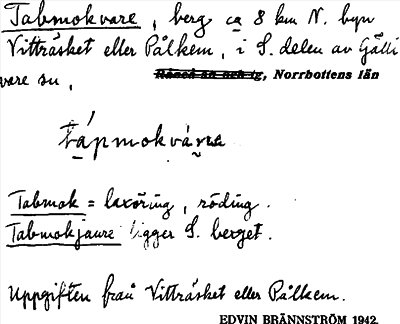 Tabmokvare, berg ca 8 km N. byn
Vitträsket eller Pålkem, i S. delen av Gälli
vare sn, Norrbottens län
tápmokvárɛ
Tabmok = laxöring, röding.
Tabmokjaure ligger S. berget.
Uppgiften från Vitträsket eller Pålkem.
EDVIN BRÄNNSTRÖM 1942.